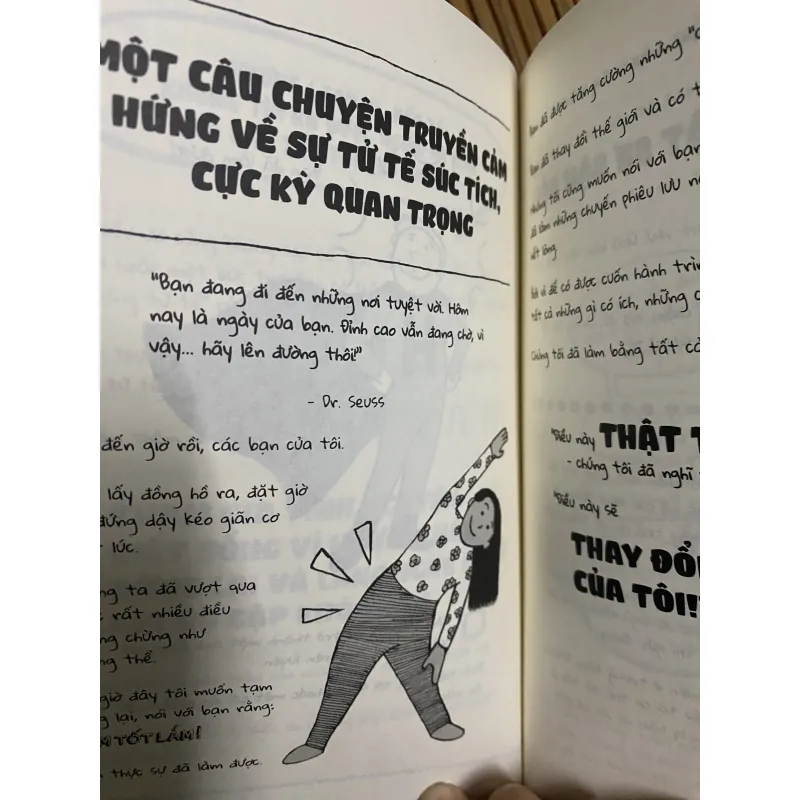 MỘT CÂU CHUYỆN TRUYỀN CẢM
HỨNG VỀ SỰ TỬ TẾ SÚC TÍCH,
CỰC KỲ QUAN TRỌNG
"Bạn đang đi đến những nơi tuyệt vời. Hôm
nay là ngày của bạn. Đỉnh cao vẫn đang chờ, vì
vậy... hãy lên đường thôi!"
- Dr. Seuss
đến giờ rồi, các bạn của tôi.
lấy đồng hồ ra, đặt giờ
đứng dậy kéo giãn cơ
lúc.
ta đã vượt qua
rất nhiều điều
chừng như
thể.
giờ đây tôi muốn tạm
lại, nói với bạn rằng:
TỐT LẮM!
thực sự đã làm được.
đã được tăng cường những "
đã thay đổi thế giới và có
tôi cũng muốn nói với bạn
đã làm những chuyến phiêu lưu
lòng.
và để có được cuốn hành trình
tất cả những gì có ích, những
Chúng tôi đã làm bằng tất cả
"Điều này THẬT
- chúng tôi đã nghĩ
"Điều này sẽ
THAY ĐỔI
CỦA TÔI!